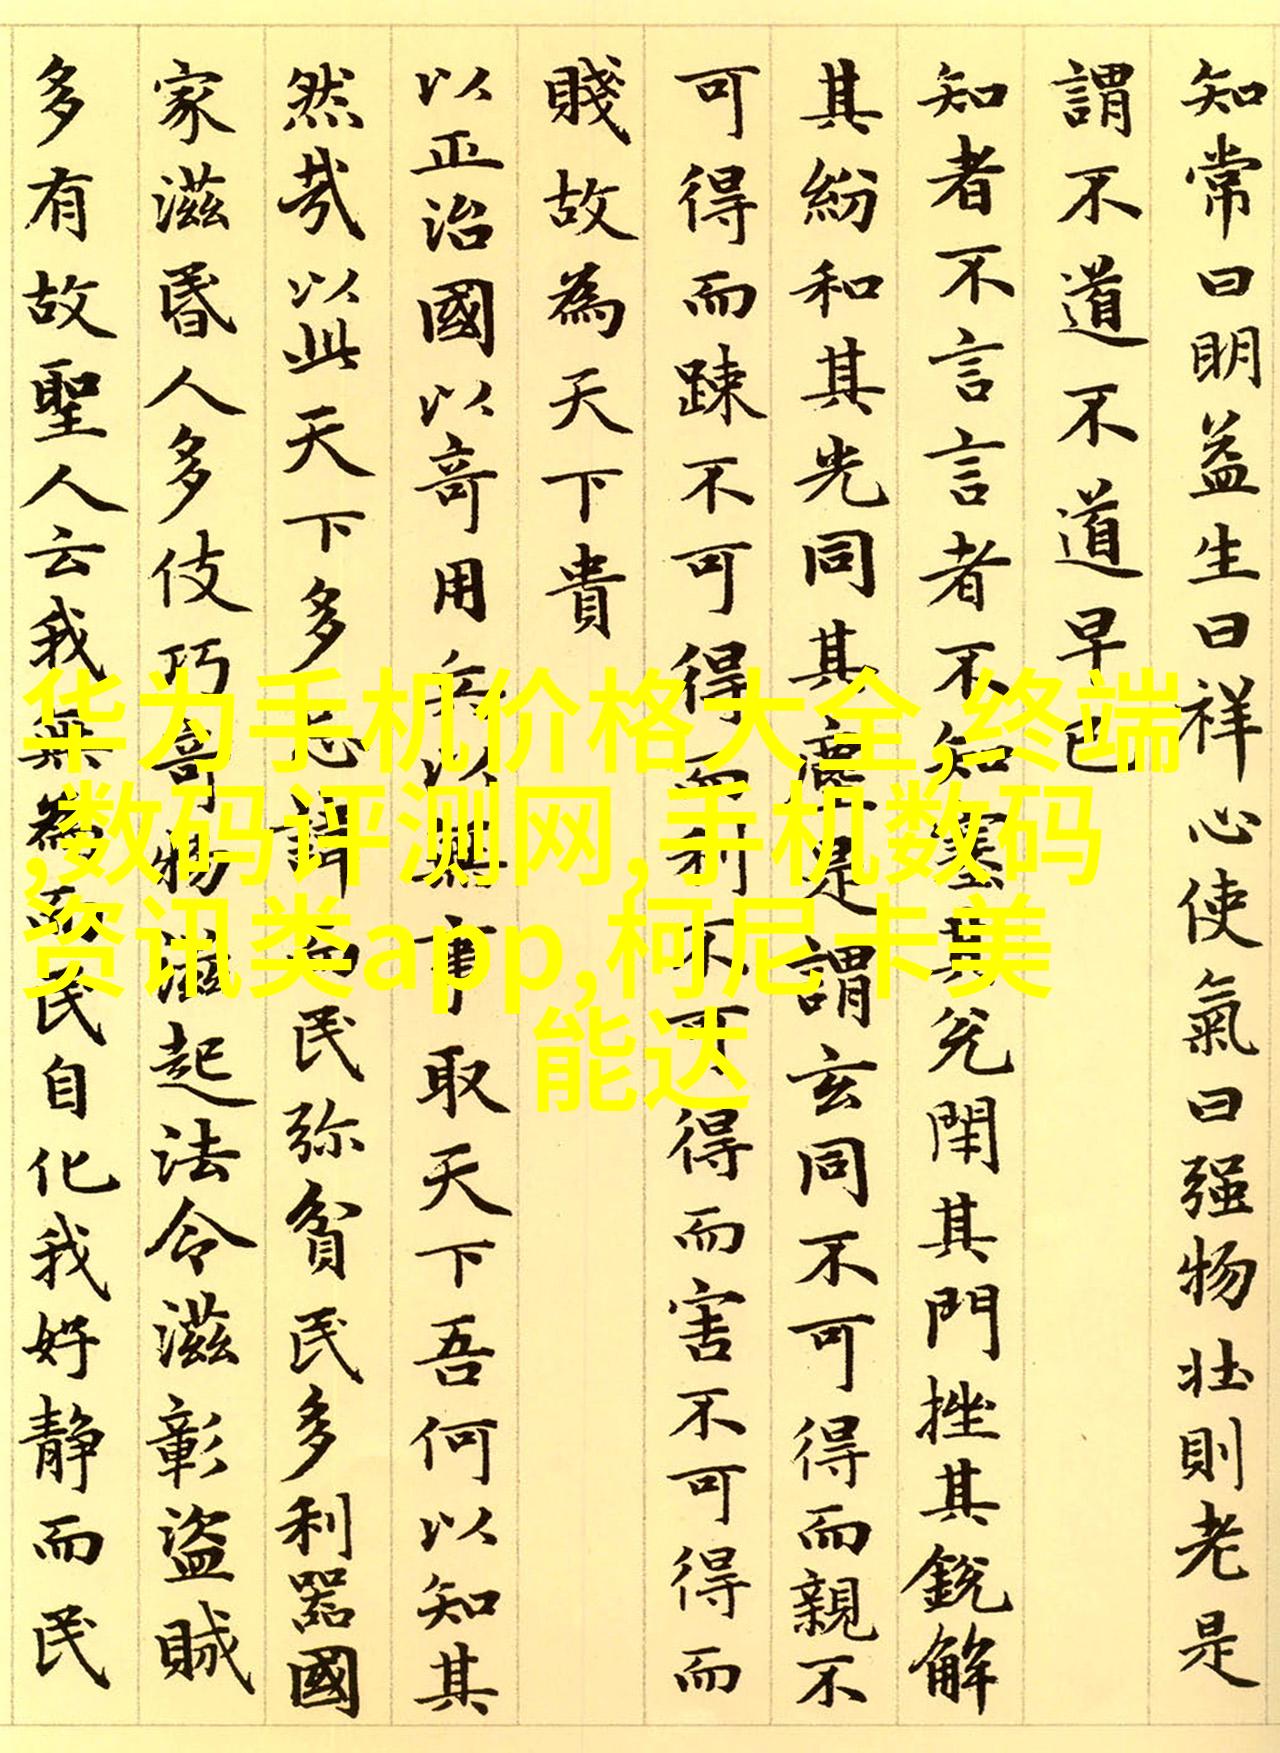 知常曰明益生曰祥心使氣曰强物壯則老是
謂不道不道早已
知者不言言者不知塞其兊閇其門挫其銳解
其紛和其光同其塵是謂玄同不可得而親不
可得而踈不可得而利不可得而害不可得而
賤故為天下貴
以正治國以竒用兵以無事取天下吾何以知其
然㢤以此天下多忌諱而民弥貧民多利器國
家滋昬人多伎巧竒物滋起法令滋彰盜賊
多有故聖人云我無為而民自化我好静而民
华为手机价格大全,终端
,数码评测网,手机数码
资讯类app,柯尼卡美
能达